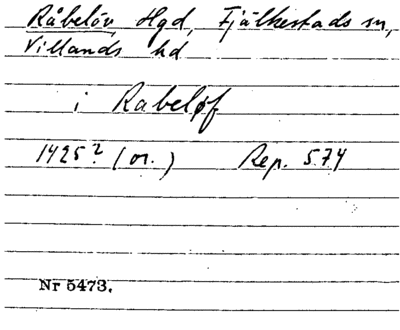 Råbelöv, Hgd, Fjälkestads sn,
Villands hd
i Rabeløf
1425? (or.) Rep. 574
Nr 5473.